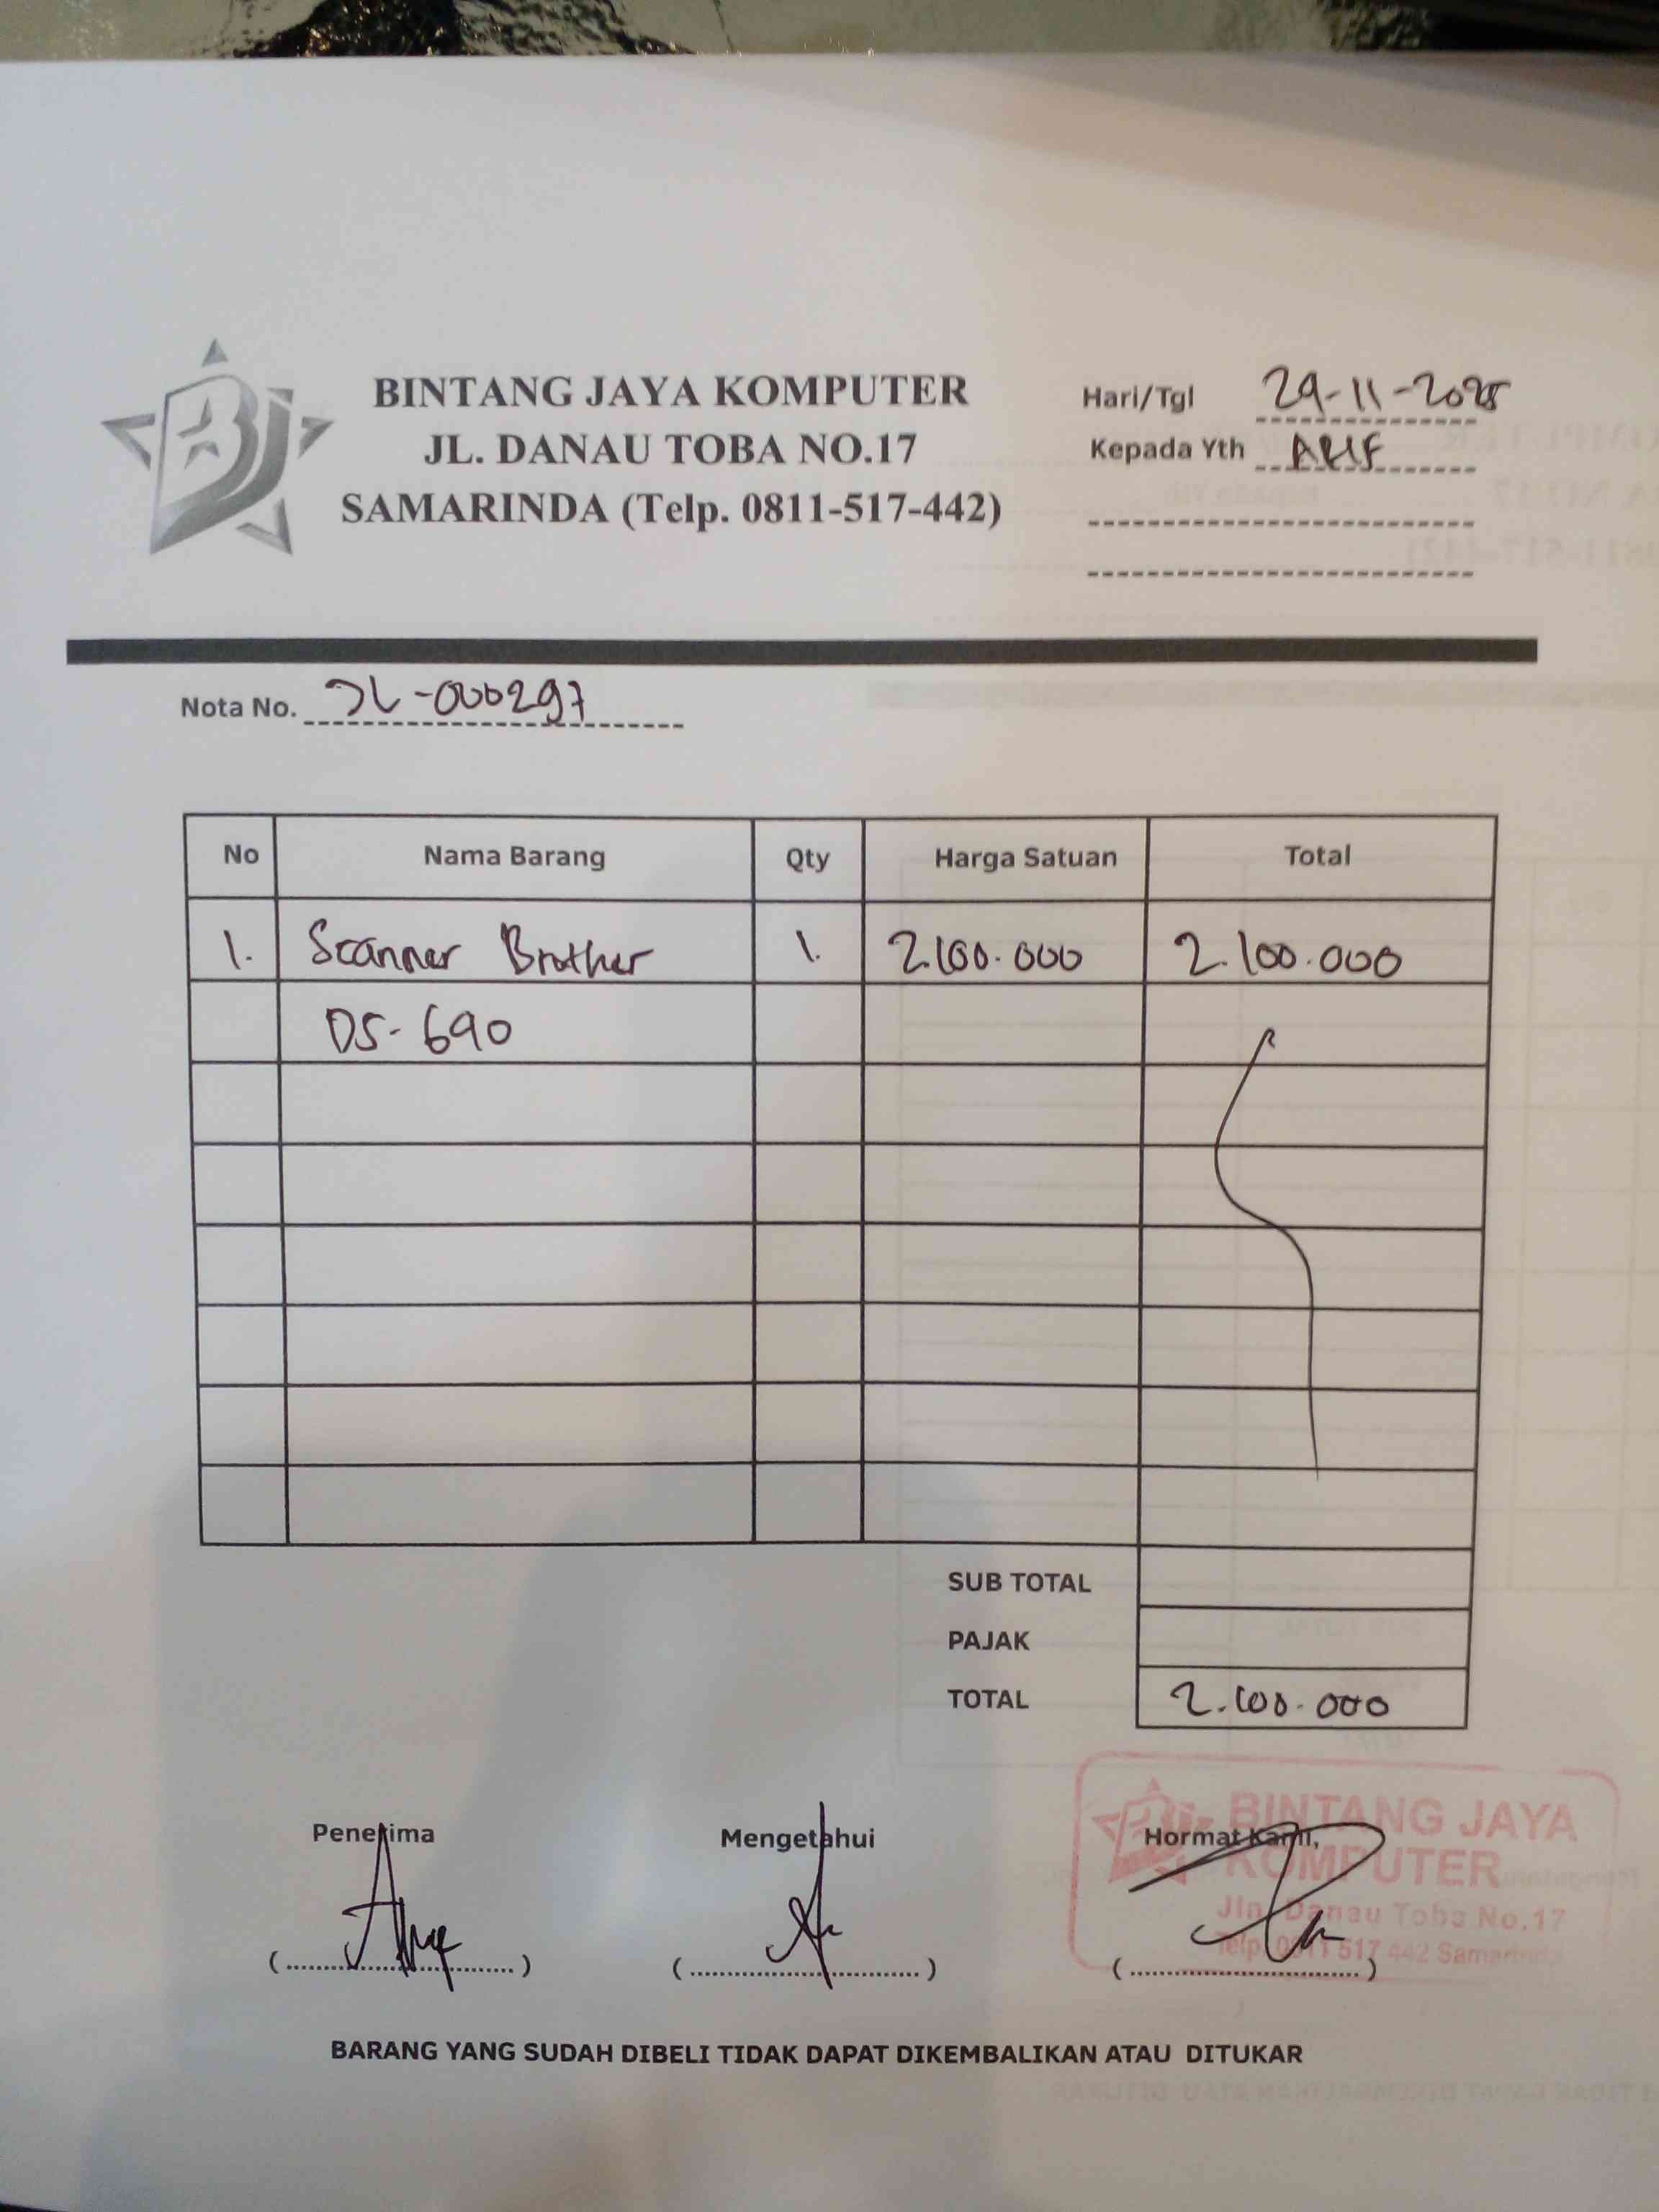 BINTANG JAYA KOMPUTER
JL. DANAU TOBA NO.17
SAMARINDA (Telp. 0811-517-442)
Hari/Tgl 29-11-2025
Kepada Yth ARIF
Nota No. JL-000297
No Nama Barang Qty Harga Satuan Total
1. Scanner Brother 1. 2.100.000 2.100.000
DS-640
SUB TOTAL
PAJAK
TOTAL 2.100.000
Penerima Mengetahui Hormat Kami,
BINTANG JAYA
KOMPUTER
Jln. Danau Toba No.17
Telp. 0811 517 442 Samarinda
BARANG YANG SUDAH DIBELI TIDAK DAPAT DIKEMBALIKAN ATAU DITUKAR